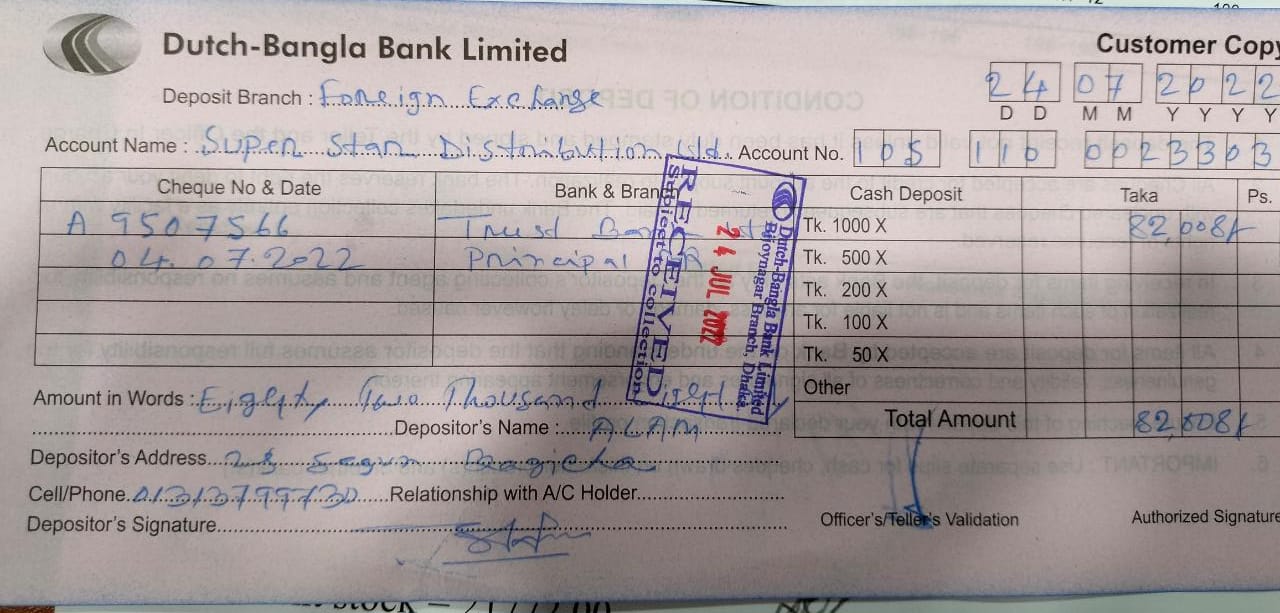 Dutch-Bangla Bank Limited
Customer Copy
24 07 2022
D D M M Y Y Y Y
Deposit Branch : Foreign Exchange
Account Name : Super Star Distribution Ltd. Account No. 105 110 0023303
Cheque No & Date Bank & Bran Cash Deposit Taka Ps.
A 9507566 Trust Tk. 1000 X 82,008/-
04.07.2022 Principal Tk. 500 X
Tk. 200 X
Tk. 100 X
Tk. 50 X
Other
Total Amount 82,008/-
Dutch-Bangla Bank Limited
Bijoynagar Branch, Dhaka.
24 JUL 2022
RECEIVED
Subject to collection
Amount in Words : Eighty Two Thousand Eight
Depositor's Name : ALAM
Depositor's Address 28 Segun Baagicha
Cell/Phone. 01313799730 Relationship with A/C Holder
Depositor's Signature
Officer's/Teller's Validation Authorized Signature